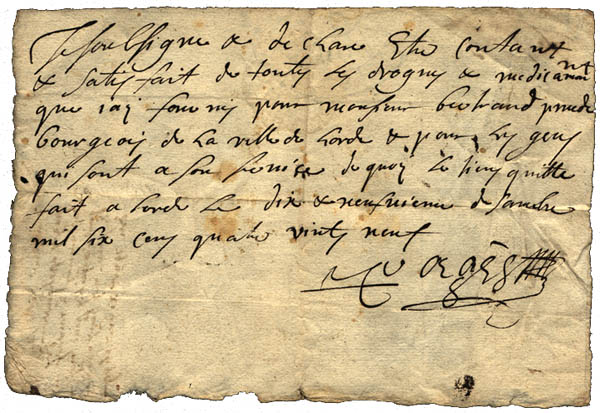 Je soubsigne & declare Estre contant
& satisfait de toutes les drogues & medicament
que iay fourni pour monsieur bertrand
bourgeois de la ville de & pour les gens
qui sont a son service de quoy le tiens quitte
fait a le dix & neufvieme de
mil six cens quatre vints neuf